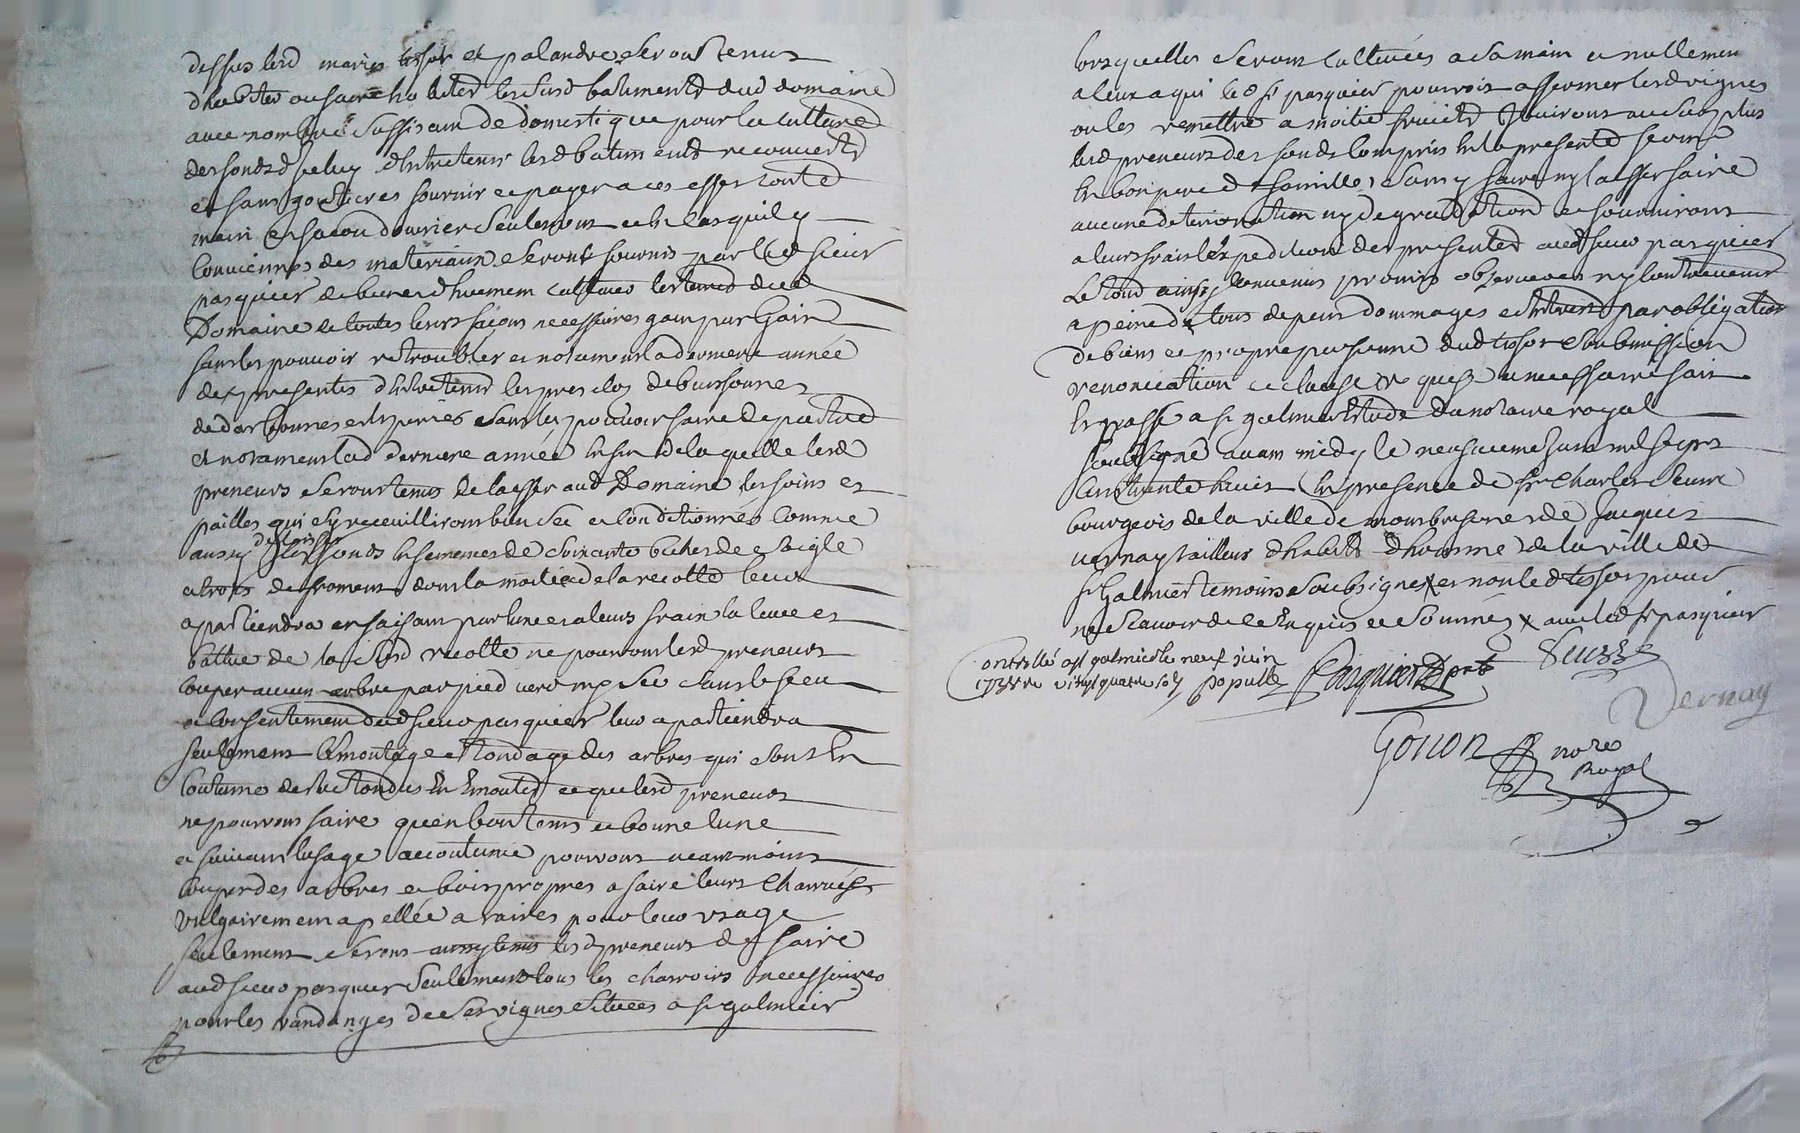 dessus lesd maries tissot et palandre seront tenus
d'habiter ou faire habiter lesusd batiments dud domaine
avec nombre suffisant de domestique pour la culture
des fonds d'iceluy d'entretenir lesd batiments recouverts
et sans goutieres fournir et payer a ces effet toute
main et facon d'ouvrier seulement et en cas quil y
conviennes des materiaux seront fournis par led sieur
pasquier de bien et duement cultiver les terres dud
Domaine de toutes leurs façons necessaires gain par gain
sans les pouvoir retroubler et notament la derniere année
des presentes d'entretenir les pres clos de buissonnes
de darbonnes et epurés sans les pouvoir faire depestre
et notament lad derniere année en fin de laquelle lesd
preneurs seront tenus de laisser aud Domaine les foins et
pailles qui sy receuilliront bien sec et conditionnés comme
aussy de laisser les fonds ensemences de soixante bichets de seigle
et trois de froment dont la moitié de la recolte leur
apartiendra en faisant par eux et a leurs frais la levee et
battue de la susd recolte ne pourront lesd preneurs
couper aucun arbre par pied vert ny sec sans le sceu
et consentement dud sieur pasquier leur apartiendra
seulement l'emontage et tondage des arbres qui sont en
coutume destre tondus et emontés ce que lesd preneurs
ne pourront faire qu'en bon tems et bonne lune
et suivant lusage accoutumé pourront neanmoins
couper des arbres et bois propres a faire leurs charrues
vulgairement apellée araires pour leur usage
seulement seront aussy tenus lesd preneurs de faire
aud sieur pasquier seulement tous les charrois necessaires
pour les vandanges de ses vignes situees a st galmier
lorsquelles seront cultivées a sa main et nullement
a leur a qui led sr pasquier pourroit affermer lesd vignes
ou les remettre a moitié fruicts jouiront au surplus
lesd preneurs des fonds compris en la presente ferme
en bon pere de famille, sans y faire ny laisser faire
aucune deterioration ny degradation et fourniront
a leurs frais expedition des presentes aud sieur pasquier
Le tout ainsy convenus promis observer ny contrevenir
a peine de tous depens dommages et interest par obligation
de biens et propre personne dud tissot soubmission
renonciation et clause requise et necessaire fait
et passé a st galmier etude du notaire royal
soubsigné avant midy le neufvieme juin mil sept
cent trente huit en presence de sr Charles Seuve
bourgeois de la ville de montbrison et de Jacques
vernay tailleur d'habits d'homme de la ville de
st galmier temoins soubsignes x et non led tissot pour
ne scavoir de ce enquis et sommés x avec led sr pasquier
Controllé a st galmier le neuf juin
1738 re vingt quatre sols populle
Pasquier Seuve
Vernay
Gonon nore
Royal